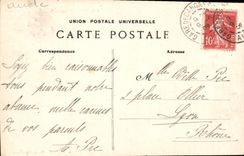 Aude
UNION POSTALE UNIVERSELLE
CARTE POSTALE
Correspondance
Adresse
Soyez bien raisonnables
tous pendant notre
absence mille caresses
de vos parents
Pic
Mlle Pic
2 place Ollier
Lyon
Rhône
10